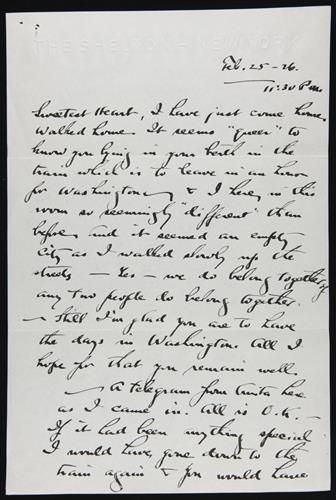 THE SHELTON NEW YORK
Feb. 25-26.
11:30 P.M.
Sweetest Heart, I have just come home,
Walked home. It seems "queer" to
know you lying in your berth in the
train which is to leave in an hour
for Washington & I here in this
room so seemingly "different" than
before and it seemed an empty
City as I walked slowly up the
streets — Yes — we do belong together if
any two people do belong together.
— Still I'm glad you are to have
the days in Washington. All I
hope for that you remain well.
— A telegram from Anita here
as I came in. All is O.K. —
If it had been anything special
I would have gone down to the
train again & you would have